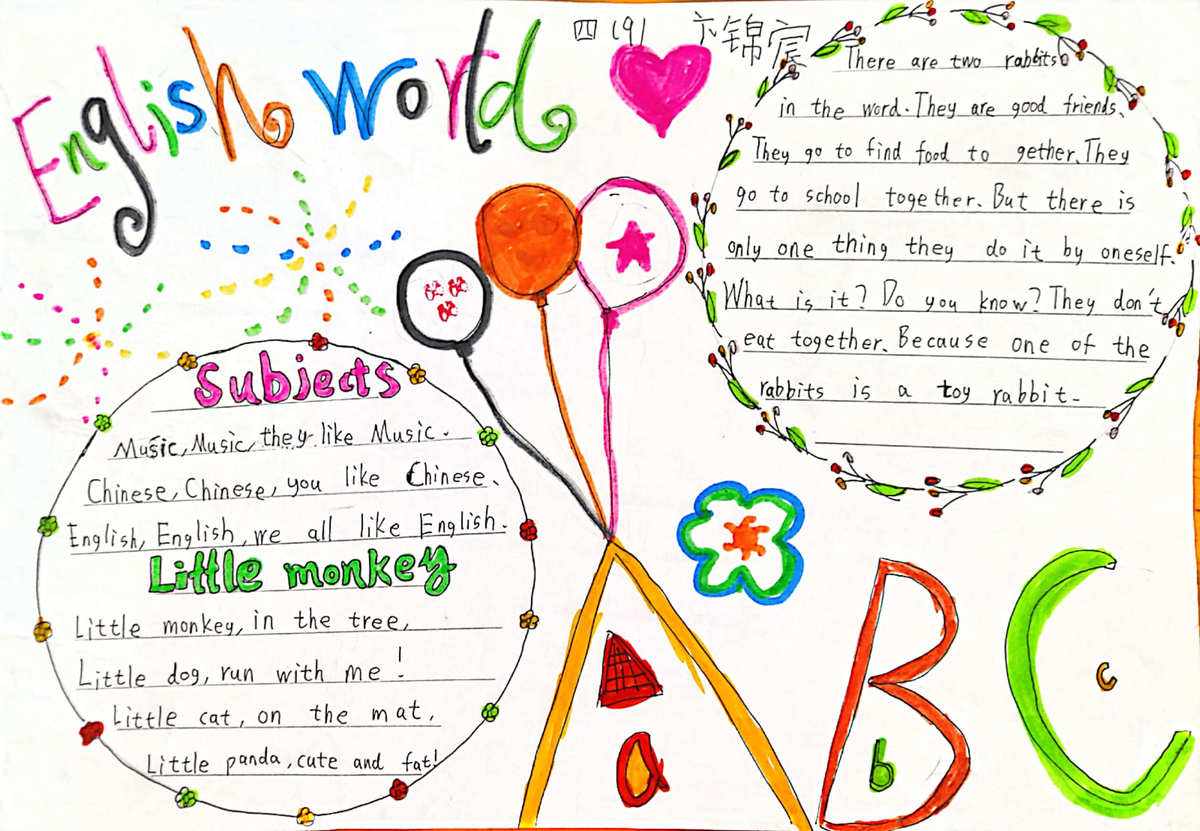 English World
四(9) 卞锦宸
There are two rabbits
in the word. They are good friends.
They go to find food to gether. They
go to school together. But there is
only one thing they do it by oneself.
What is it? Do you know? They don't
eat together. Because one of the
rabbits is a toy rabbit.
Subjects
Music, Music, they like Music.
Chinese, Chinese, you like Chinese.
English, English, we all like English.
Little monkey
Little monkey, in the tree,
Little dog, run with me!
Little cat, on the mat,
Little panda, cute and fat!
A B C
a b c